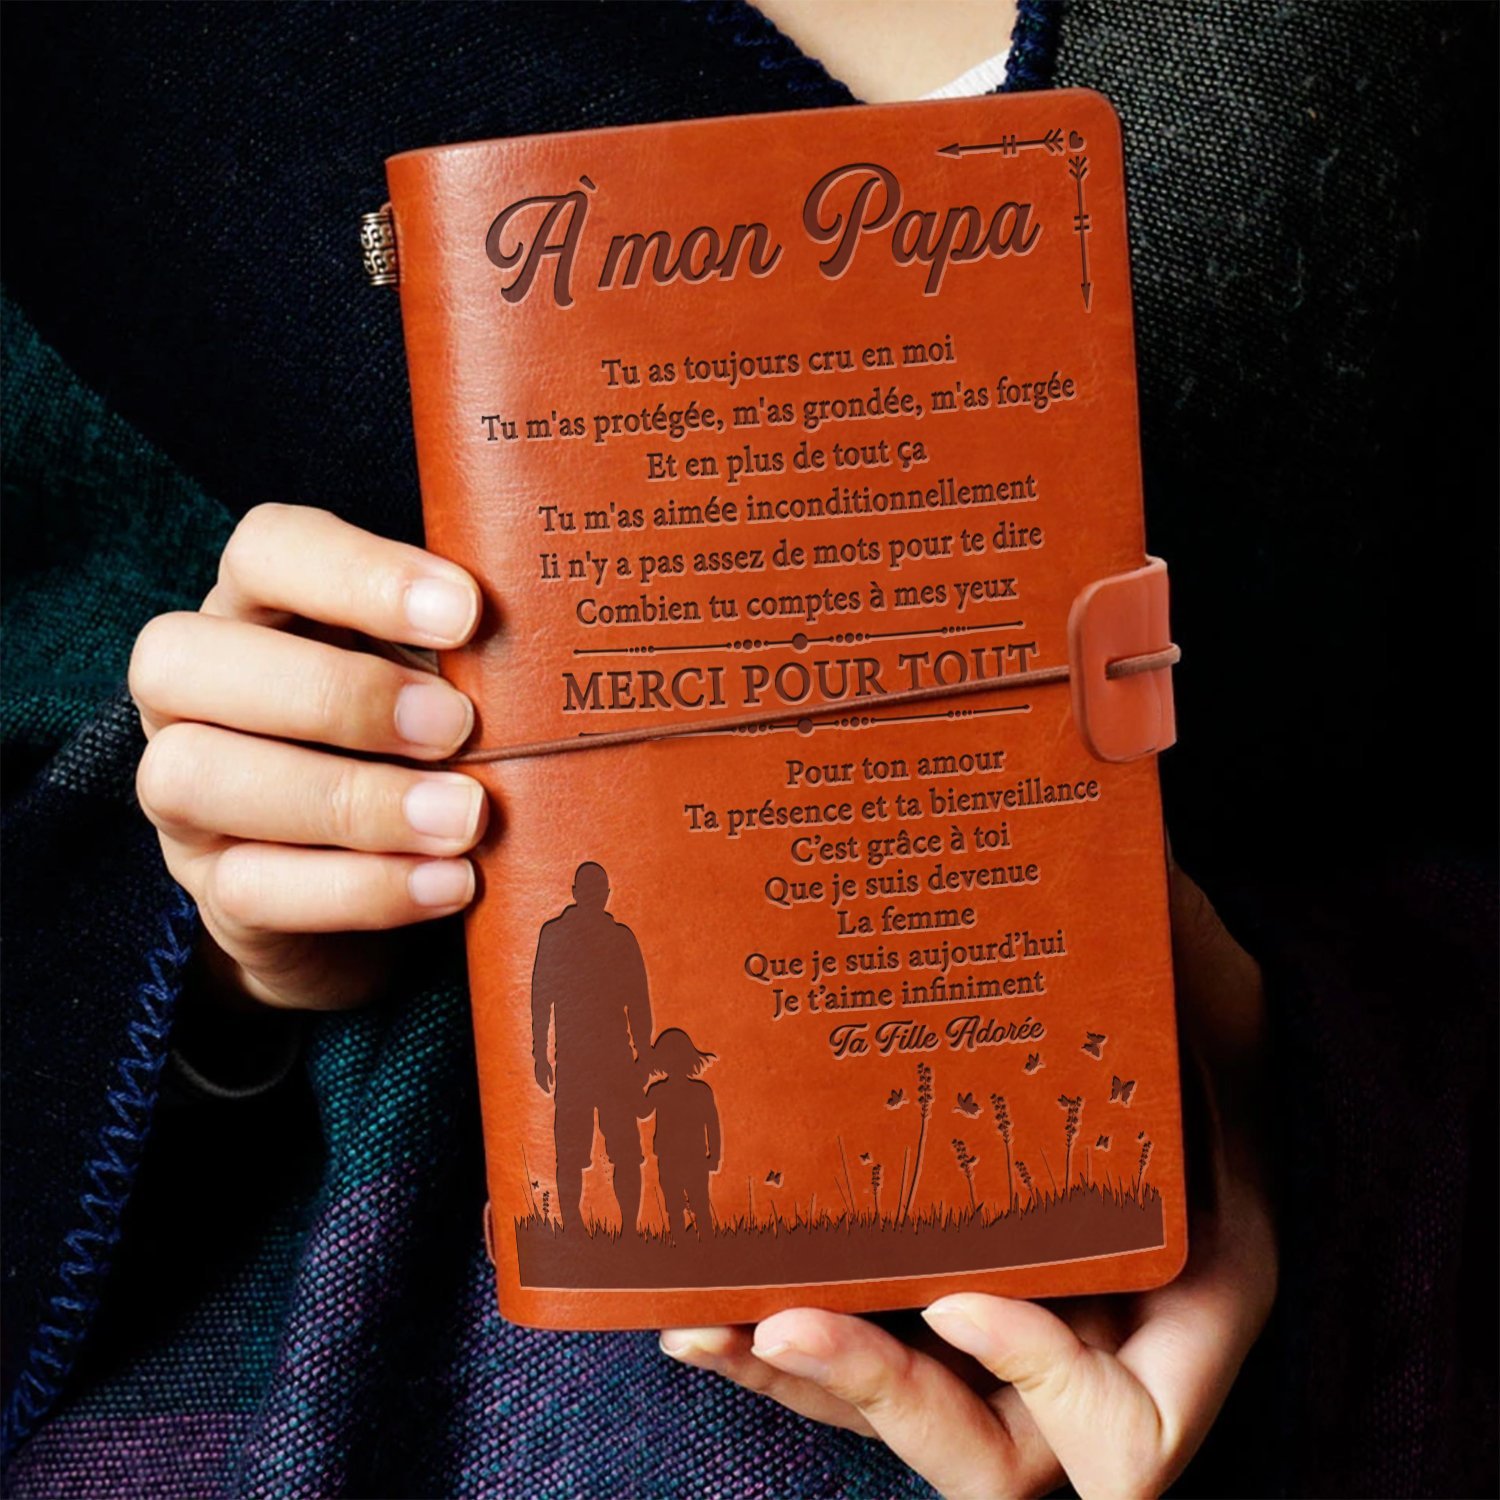 À mon Papa
Tu as toujours cru en moi
Tu m'as protégée, m'as grondée, m'as forgée
Et en plus de tout ça
Tu m'as aimée inconditionnellement
Ii n'y a pas assez de mots pour te dire
Combien tu comptes à mes yeux
MERCI POUR TOUT
Pour ton amour
Ta présence et ta bienveillance
C’est grâce à toi
Que je suis devenue
La femme
Que je suis aujourd’hui
Je t’aime infiniment
Ta Fille Adorée